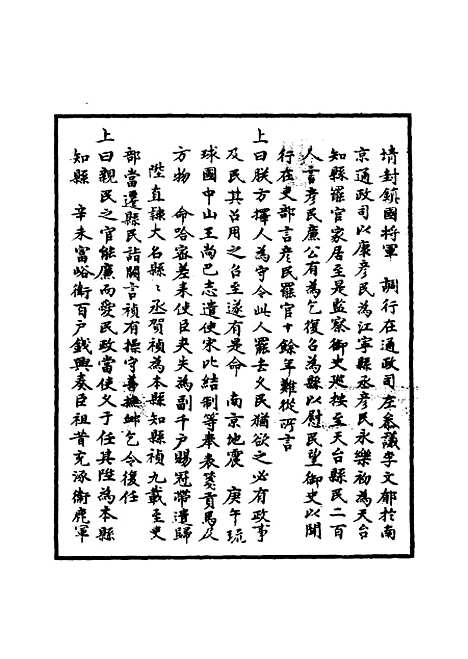 靖封鎮國將軍　調行在通政司左叅議李文郁於南
京通政司以康彥民為江寧縣丞彥民永樂初為天台
知縣罷官家居至是監察御史廵按至天台縣民二百
人言彥民廉公有為乞復召為縣以慰民望御史以聞
行在吏部言彥民罷官十餘年難從所言
上曰朕方擇人為守令此人罷去久民猶欲之必有政事
及民其召用之台至遂有是命　南京地震　庚午琉
球國中山王尚巴志遣使宋比結制等奉表箋貢馬及
方物　命哈密差来使臣夬夬為副千户賜冠帶遣歸
陞直隷大名縣〻丞賀禎為本縣知縣禎九載至吏
部當遷縣民詣闕言禎有操守善撫䘏乞令復任
上曰親民之官能廉而愛民政當使久于任其陞為本縣
知縣　辛未富峪衛百户錢興奏臣祖昔充涿衛鹿軍